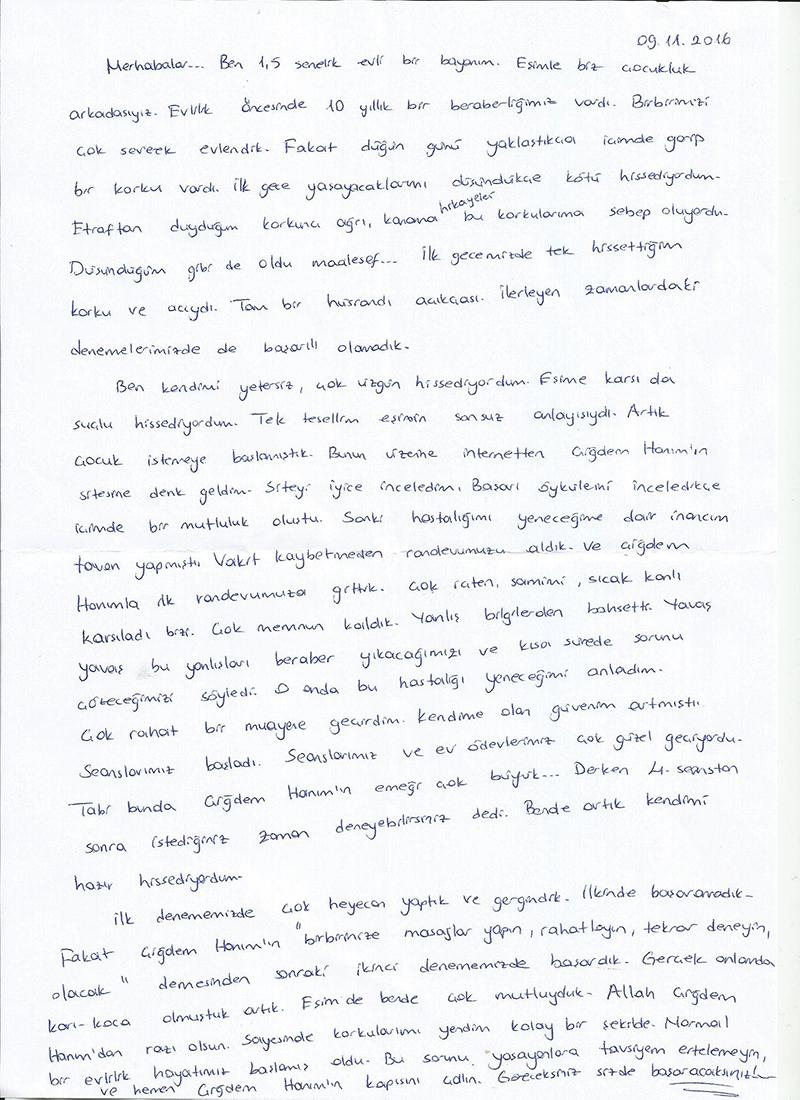 09.11.2016
Merhabalar... Ben 1,5 senelik evli bir bayanım. Eşimle biz çocukluk
arkadaşıyız. Evlilik öncesinde 10 yıllık bir beraberliğimiz vardı. Birbirimizi
çok severek evlendik. Fakat düğün günü yaklaştıkça içimde garip
bir korku vardı. İlk gece yaşayacaklarımı düşündükçe kötü hissediyordum.
Etraftan duyduğum korkunç ağrı, kanama hikayeleri bu korkularıma sebep oluyordu.
Düşündüğüm gibi de oldu maalesef... İlk gecemizde tek hissettiğim
korku ve acıydı. Tam bir hüsrandı açıkçası. İlerleyen zamanlardaki
denemelerimizde de başarılı olamadık.
Ben kendimi yetersiz, çok üzgün hissediyordum. Eşime karşı da
suçlu hissediyordum. Tek tesellim eşimin sonsuz anlayışıydı. Artık
çocuk istemeye başlamıştık. Bunun üzerine internetten Çiğdem Hanım'ın
sitesine denk geldim. Siteyi iyice inceledim. Başarı öykülerini inceledikçe
içimde bir mutluluk oluştu. Sanki hastalığımı yeneceğime dair inancım
tavan yapmıştı. Vakit kaybetmeden randevumuzu aldık. Ve Çiğdem
Hanımla ilk randevumuza gittik. Çok içten, samimi, sıcak kanlı
karşıladı bizi. Çok memnun kaldık. Yanlış bilgilerden bahsetti. Yavaş
yavaş bu yanlışları beraber yıkacağımızı ve kısa sürede sorunu
çözeceğimizi söyledi. O anda bu hastalığı yeneceğimi anladım.
Çok rahat bir muayene geçirdim. Kendime olan güvenim artmıştı.
Seanslarımız başladı. Seanslarımız ve ev ödevlerimiz çok güzel geçiyordu.
Tabi bunda Çiğdem Hanım'ın emeği çok büyük... Derken 4. seanstan
sonra istediğiniz zaman deneyebilirsiniz dedi. Bende artık kendimi
hazır hissediyordum.
İlk denememizde çok heyecan yaptık ve gergindik. İlkinde başaramadık.
Fakat Çiğdem Hanım'ın "birbirinize masajlar yapın, rahatlayın, tekrar deneyin,
olacak" demesinden sonraki ikinci denememizde başardık. Gerçek anlamda
karı-koca olmuştuk artık. Eşim de bende çok mutluyduk. Allah Çiğdem
Hanım'dan razı olsun. Sayesinde korkularımı yendim kolay bir şekilde. Normal
bir evlilik hayatımız başlamış oldu. Bu sorunu yaşayanlara tavsiyem ertelemeyin,
ve hemen Çiğdem Hanım'ın kapısını çalın. Göreceksiniz sizde başaracaksınız!